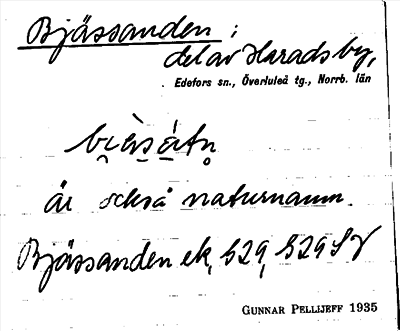 Bjässanden;
del av Haradsby,
Edefors sn., Överluleå tg., Norrb. län
är också naturnamn.
Bjässanden ek, 529, 529 SV
GUNNAR PELLIJEFF 1935